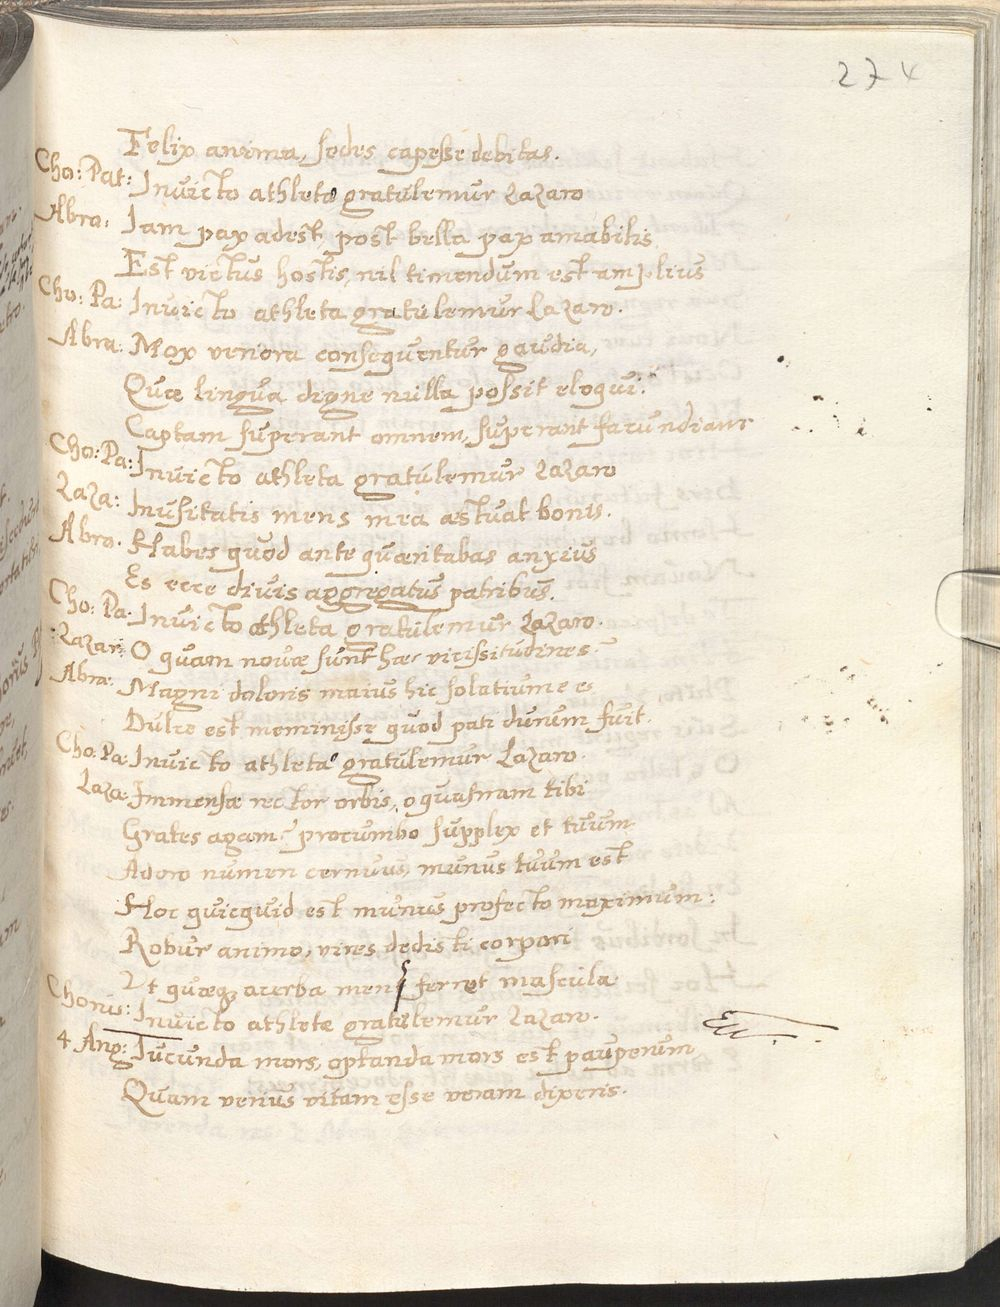 274
Felix anima, sedes capesse debitas.
Cho: Pat: Invicto athletae gratulemur Lazaro
Abra: Iam pax adest, post bella pax amabilis
Est victus hostis, nil timendum est amplius
Cho: Pa: Invicto athletae gratulemur Lazaro.
Abra. Mox venera consequentur gaudia,
Quae lingua digne nulla possit eloqui.
Captam superant omnem, superant facundiam
Cho: Pa: Invicto athletae gratulemur Lazaro
Laza: Inusitatis mens mea aestuat bonis.
Abra. Habes quod ante quaeritabas anxius
Es ecce divis aggregatus patribus.
Cho: Pa: Invicto athletae gratulemur Lazaro.
Lazar: O quam novae sunt hae vicissitudines.
Abra: Magni doloris maius hic solatium e
Dulce est meminisse quod pati durum fuit.
Cho: Pa: Invicto athletae gratulemur Lazaro.
Laza: Immensae rector orbis, o quasnam tibi
Grates agam? procumbo supplex et tuum
Adoro numen cernuus, munus tuum est
Hoc quicquid est munus profecto maximum:
Robur animo, vires dedisti corpori
Ut quaeq; acerba mens ferret mascula.
Chorus: Invicto athletae gratulemur Lazaro.
4. Ang: Iucunda mors, optanda mors est pauperum
Quam verius vitam esse veram dixeris.